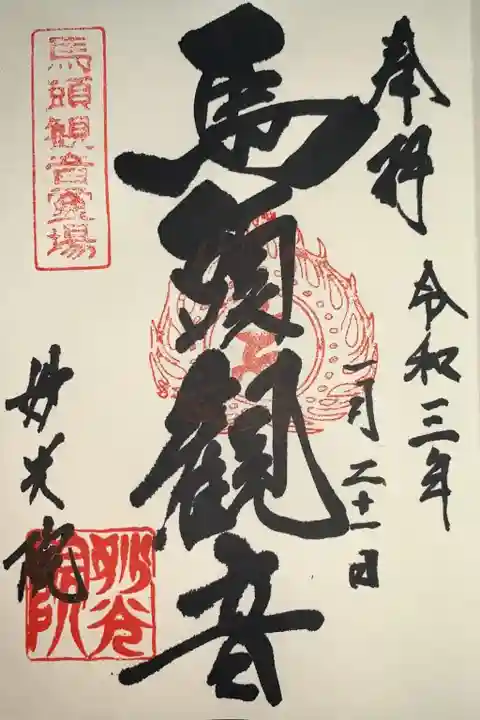 奉拝
令和三年
一月二十一日
馬頭観音
馬頭観音霊場
妙光院
妙光院印